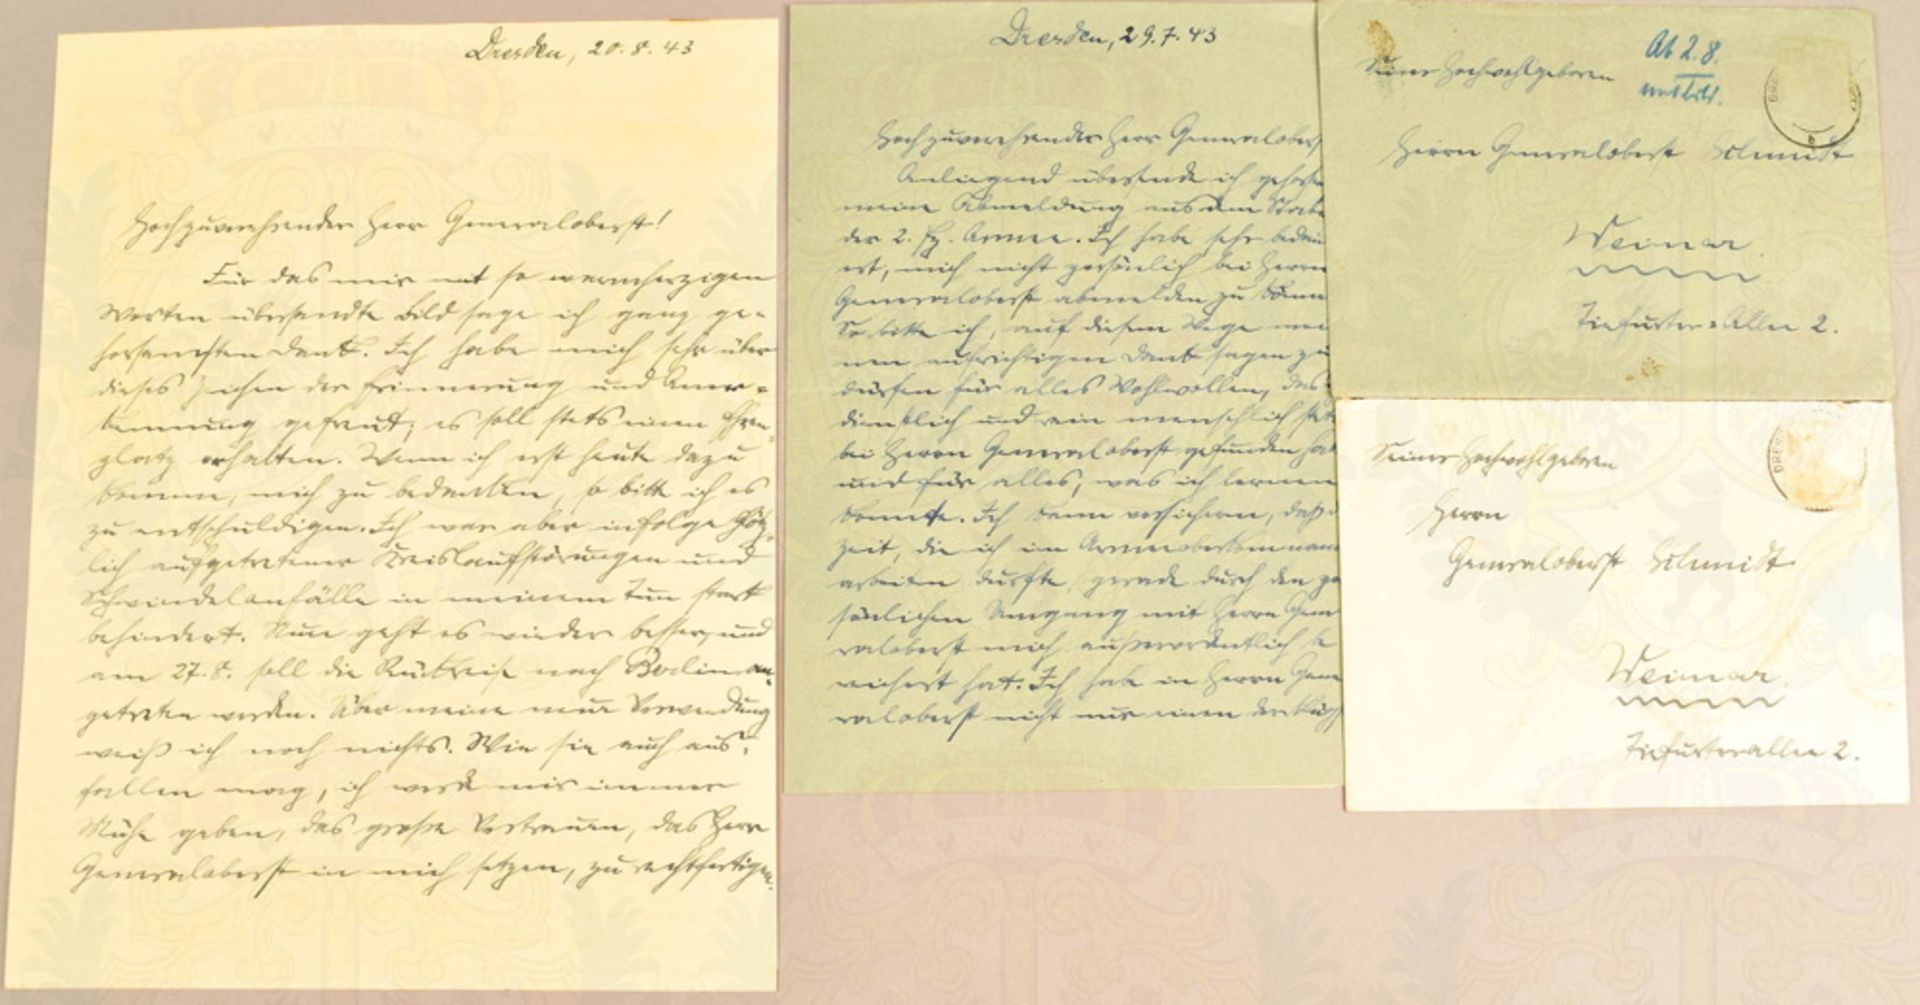 Dresden, 20.8.43
Hochzuverehrender Herr Generaloberst!
Für das mir mit so warmherzigen
Worten übersandte Bild sage ich ganz ge-
horsamsten Dank. Ich habe mich sehr über
dieses Zeichen der Erinnerung und Aner-
kennung gefreut; es soll stets einen Ehren-
platz erhalten. Wenn ich erst heute dazu
komme, mich zu bedanken, so bitte ich es
zu entschuldigen. Ich war aber infolge plötz-
lich aufgetretener Kreislaufstörungen und
Schwindelanfälle in meinem Tun stark
behindert. Nun geht es wieder besser, und
am 27.8. soll die Rückreise nach Berlin an-
getreten werden. Über meine neue Verwendung
weiß ich noch nichts. Wie sie auch aus-
fallen mag, ich werde mir immer
Mühe geben, das große Vertrauen, das Herr
Generaloberst in mich setzen, zu rechtfertigen.
Dresden, 29.7.43
Hochzuverehrender Herr Generaloberst
Anliegend übersende ich gehors
meine Abmeldung aus dem Stabe
der 2. Pz. Armee. Ich habe sehr bedau
ert, mich nicht persönlich bei Herrn
Generaloberst abmelden zu könn
So bitte ich, auf diesem Wege mei
nen aufrichtigen Dank sagen zu
dürfen für alles Wohlwollen, das
dienstlich und rein menschlich stet
bei Herrn Generaloberst gefunden hab
und für alles, was ich lernen
konnte. Ich kann versichern, daß d
Zeit, die ich im Armeeoberkomman
arbeiten durfte, gerade durch den pe
sönlichen Umgang mit Herrn Gene
raloberst mich außerordentlich be
reichert hat. Ich habe in Herrn Gene
raloberst nicht nur einen der
Seiner Hochwohlgeboren
Ab 2.8.
Herrn Generaloberst Schmidt
Weimar
Tiefurter-Allee 2.
Seiner Hochwohlgeboren
Herrn
Generaloberst Schmidt
Weimar
Tiefurterallee 2.